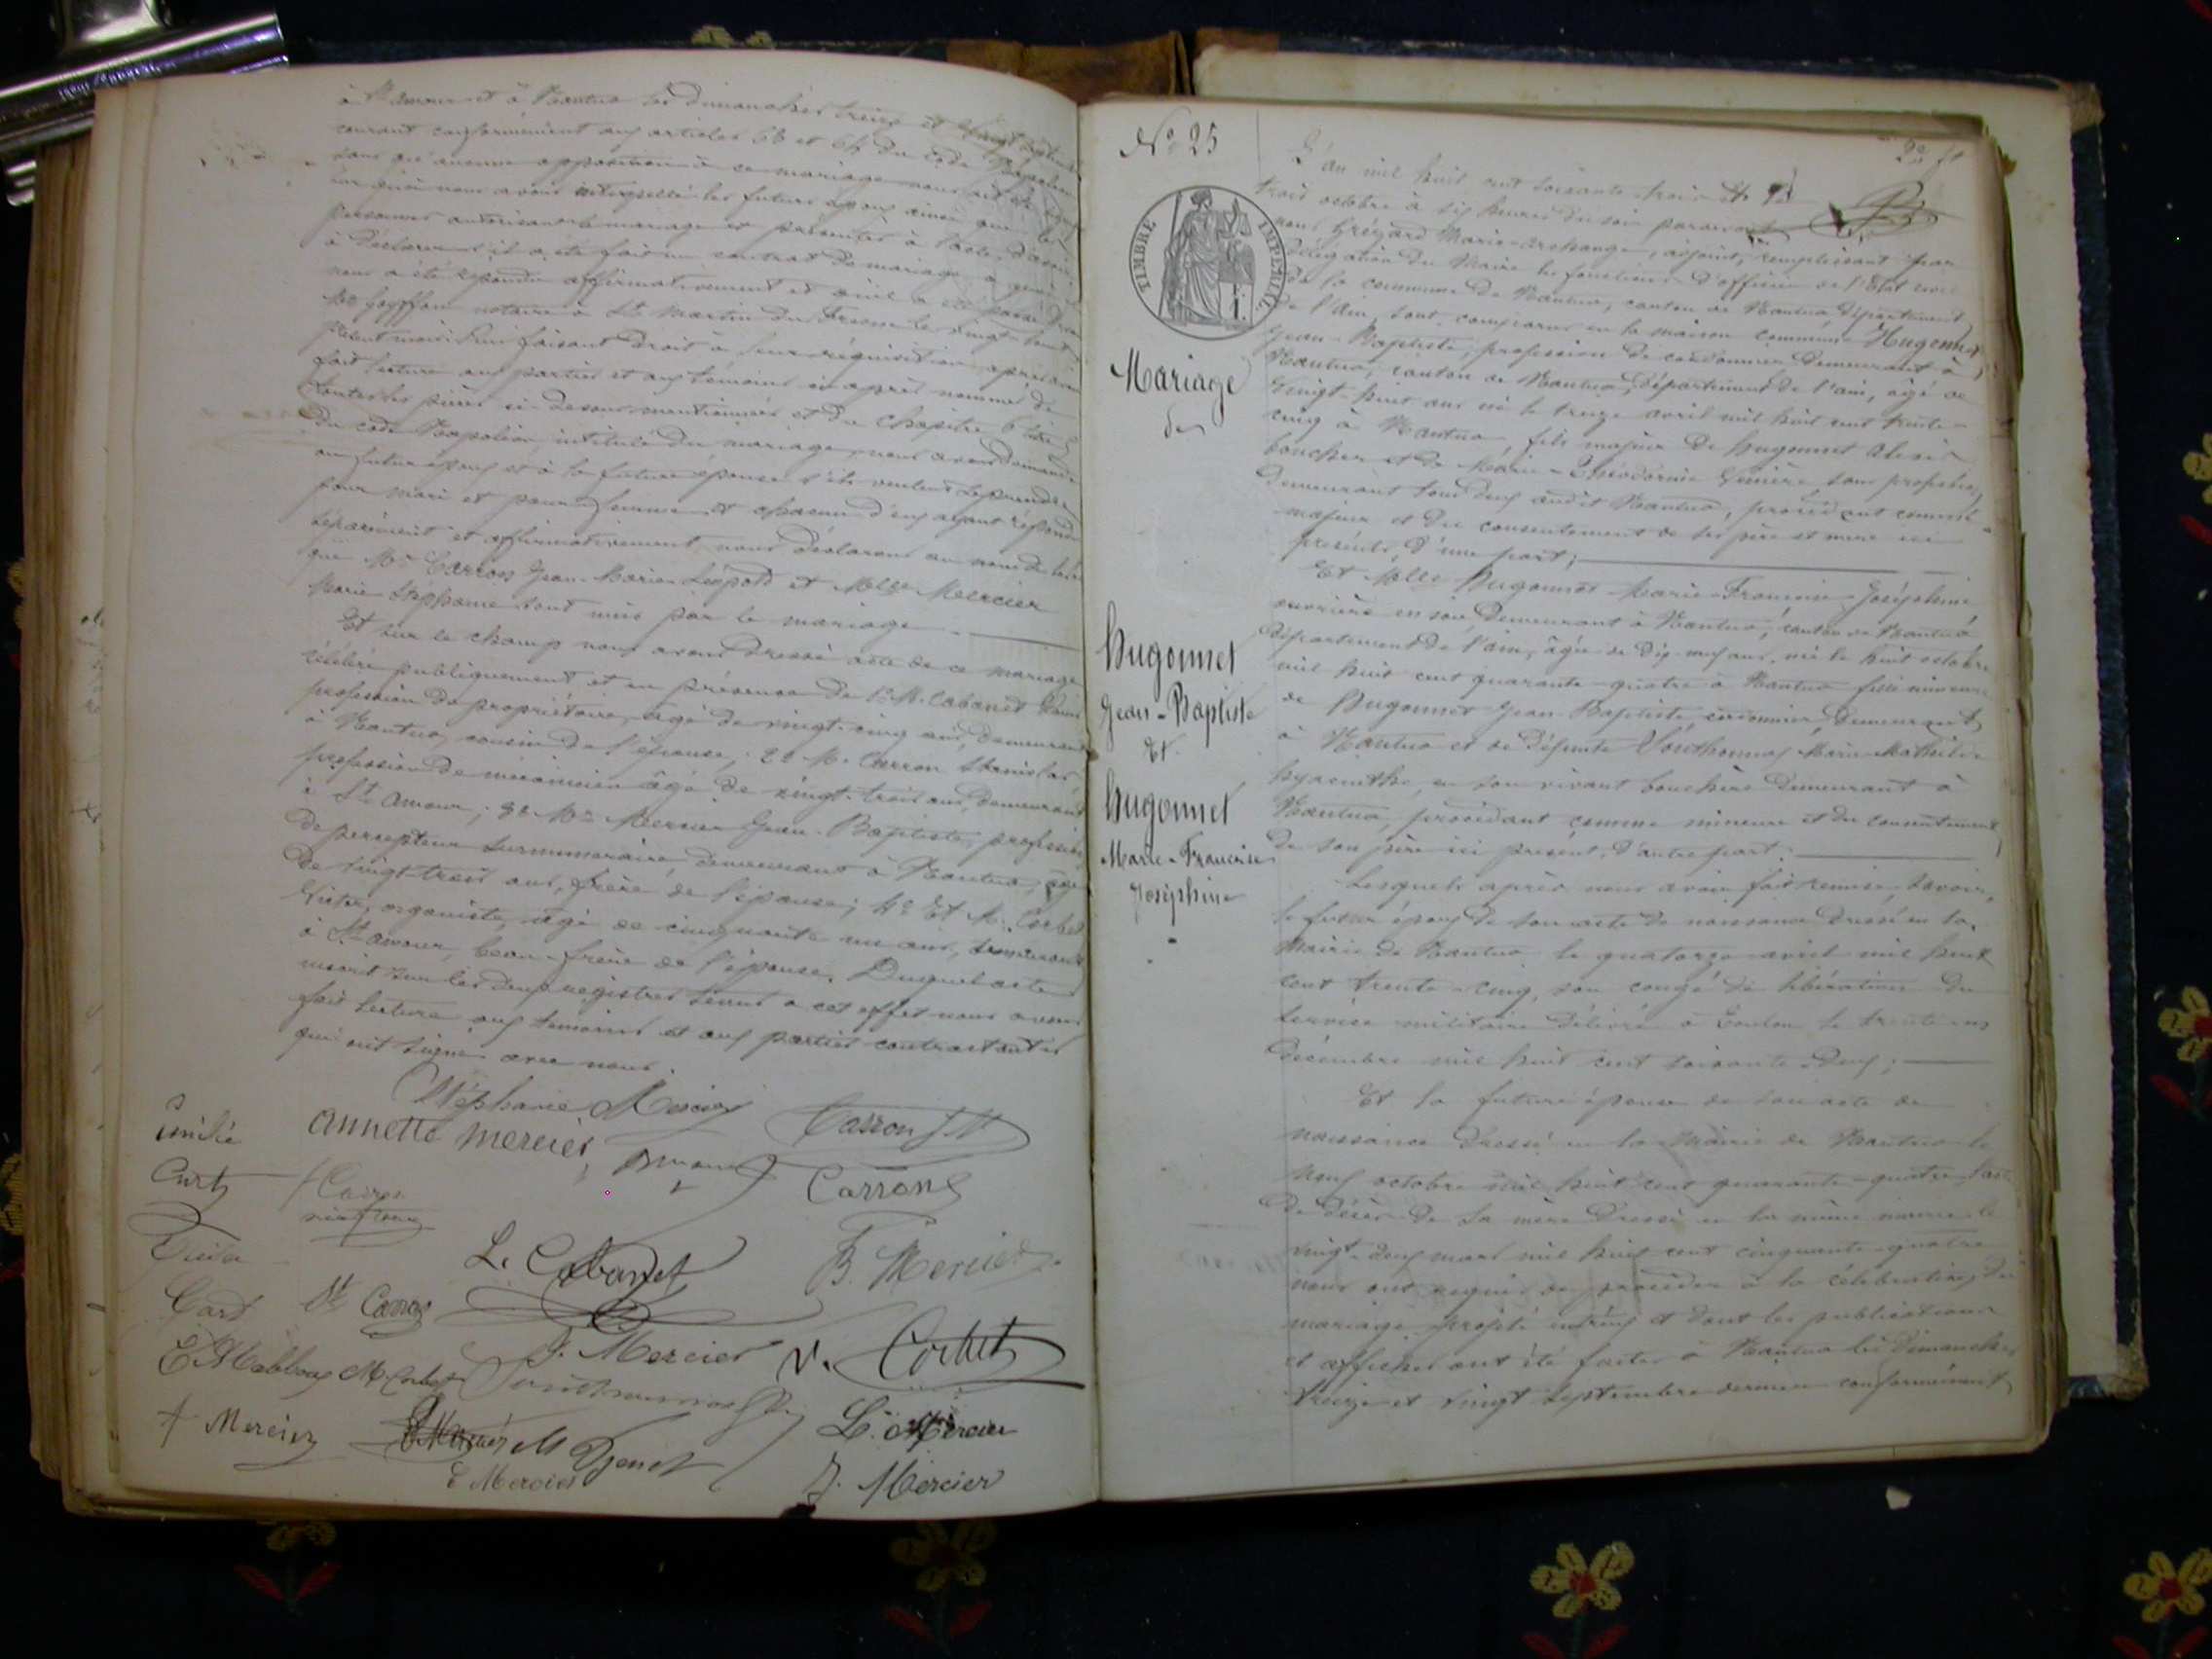 à St amour et à Nantua les dimanches treize et vingt septembre
courant conformément aux articles 63 et 64 du Code Napoléon
sans qu'aucune opposition à ce mariage nous ait été
sur quoi nous avons interpellé les futurs époux ainsi que les
personnes autorisant le mariage et présentes à l'acte, d'avoir
à déclarer s'il a été fait un contrat de mariage, à quoi
nous a été répondu affirmativement et qu'il a été passé devant
Me notaire à St Martin du Fresne le vingt
présent mois. Puis faisant droit à leur réquisition, après avoir
fait lecture aux parties et aux témoins ci après nommés de
toutes les pièces ci-dessus mentionnées et du chapitre 6 titre 5
du code Napoléon, intitulé du mariage, nous avons demandé
au futur époux et à la future épouse s'ils veulent se prendre
pour mari et pour femme et chacun d'eux ayant répondu
séparément et affirmativement, nous déclarons au nom de la loi
que Mr Carron Jean-Marie-Léopold et Melle Mercier
Marie Stéphanie sont unis par le mariage.
Et sur le champ nous avons dressé acte de ce mariage
célébré publiquement et en présence de 1° M. Cabanet
profession de propriétaire, âgé de vingt-cinq ans, demeurant
à Nantua, cousin de l'épouse; 2° M. Carron Stanislas
profession de mécanicien âgé de vingt-trois ans, demeurant
à St Amour; 3° Mr Mercier Jean-Baptiste, profession
de percepteur surnuméraire, demeurant à Nantua, âgé
de vingt-trois ans, frère de l'épouse; 4° Et M. Corbet
Victor, organiste, âgé de cinquante un ans, demeurant
à St amour, beau-frère de l'épouse. Duquel acte
inscrit sur les deux registres tenus à cet effet nous avons
fait lecture aux témoins et aux parties contractantes
qui ont signé avec nous.
Stéphanie Mercier
Carron J. M
annette mercier
Emilie
Curty
Carron
L. Cabanet
B. Mercier
St Carron
J. Mercier
V. Corbet
M Corbet
F Mercier
L. Mercier
E Mercier
J. Mercier
No 25
TIMBRE IMPERIAL
1 f.
Mariage
de
Hugonnet
Jean-Baptiste
Et
Hugonnet
Marie-Francoise
Joséphine
L'an mil huit cent soixante-trois et le
trois octobre à six heures du soir pardevant
nous Grézard Marie-Archange, adjoint, remplissant par
délégation du Maire les fonctions d'officier de l'Etat civil
de la commune de Nantua, canton de Nantua, département
de l'Ain, sont comparus en la maison commune Hugonnet
Jean-Baptiste, profession de cordonnier demeurant à
Nantua, canton de Nantua, département de l'ain, âgé de
vingt-huit ans né le treize avril mil huit cent trente-
cinq à Nantua fils majeur de hugonnet Alexis
boucher et de Marie-Théodorine sans profession
demeurant tous deux audit Nantua, procédant comme
majeur et du consentement de ses père et mère ici
présents, d'une part;
Et Melle Hugonnet Marie-Francoise-Joséphine
ouvrière en soie, demeurant à Nantua, canton de Nantua
département de l'ain, âgée de dix-neuf ans, née le huit octobre
mil huit cent quarante-quatre à Nantua fille mineure
de Hugonnet Jean Baptiste, cordonnier, demeurant
à Nantua et de défunte Southonnax Marie-Mathilde
hyacinthe, en son vivant bouchère demeurant à
Nantua, procédant comme mineure et du consentement
de son père ici présent, d'autre part;
Lesquels après nous avoir fait remise, savoir,
le futur époux de son acte de naissance dressé en la
Mairie de Nantua le quatorze avril mil huit
cent trente-cinq, son congé de libération du
service militaire délivré à Toulon le trente un
décembre mil huit cent soixante-deux;
Et la future épouse de son acte de
naissance dressé en la Mairie de Nantua le
neuf octobre mil huit cent quarante-quatre, l'acte
de décès de sa mère dressé en la même mairie le
vingt-deux mars mil huit cent cinquante-quatre
nous ont requis de procéder à la célébration du
mariage projeté entr'eux et dont les publications
et affiches ont été faites à Nantua les dimanches
treize et vingt septembre dernier conformément